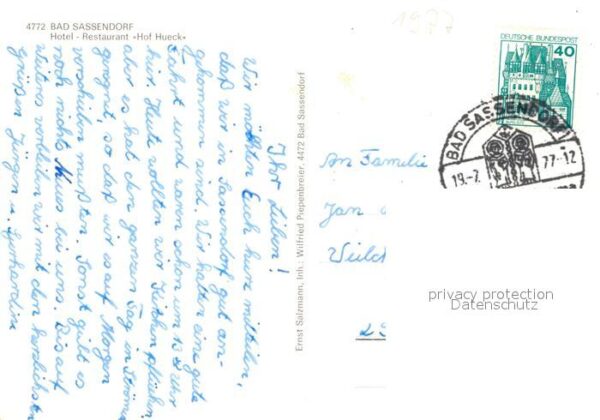 1977
4772 BAD SASSENDORF
Hotel - Restaurant «Hof Hueck»
Ihr Lieben!
Wir möchten Euch kurz mitteilen,
daß wir in Sassendorf gut an-
gekommen sind. Wir hatten eine gute
Fahrt und waren schon um 13 Uhr
hier. Heute wollten wir Kirschen pflücken,
aber es hat den ganzen Tag in Strömen
geregnet, so daß wir es auf Morgen
verschieben mußten. Sonst gibt es
noch nichts Neues bei uns. Bis auf
weiteres verbleiben wir mit den herzlichsten
Grüßen Jürgen u. Gerhardine
Ernst Salzmann, Inh.: Wilfried Piepenbreier, 4472 Bad Sassendorf
DEUTSCHE BUNDESPOST
40
BAD SASSENDORF
19.-7. 77-12
An Familie
Jan
privacy protection
Datenschutz